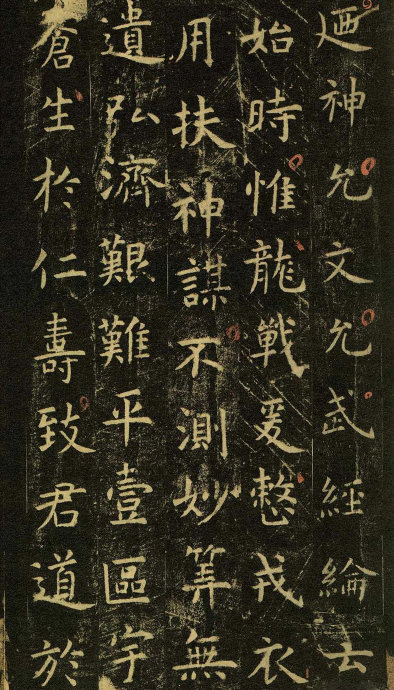 廼神允文允武經綸云
始時惟龍戰爰整戎衣
用扶神謀不測妙筭無
遺弘濟艱難平壹區宇
蒼生於仁壽致君道於